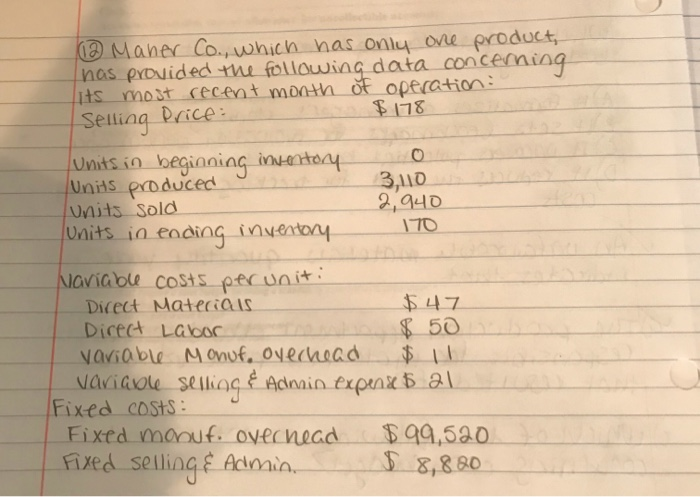 ⑫ Maner Co., which has only one product,
has provided the following data concerning
its most recent month of operation:
Selling Price: $178
Units in beginning inventory 0
Units produced 3,110
Units sold 2,940
Units in ending inventory 170
Variable costs per unit:
Direct Materials $47
Direct Labor $50
Variable Manuf. overhead $11
Variable selling & Admin expense $21
Fixed costs:
Fixed manuf. overhead $99,520
Fixed selling & Admin. $8,820